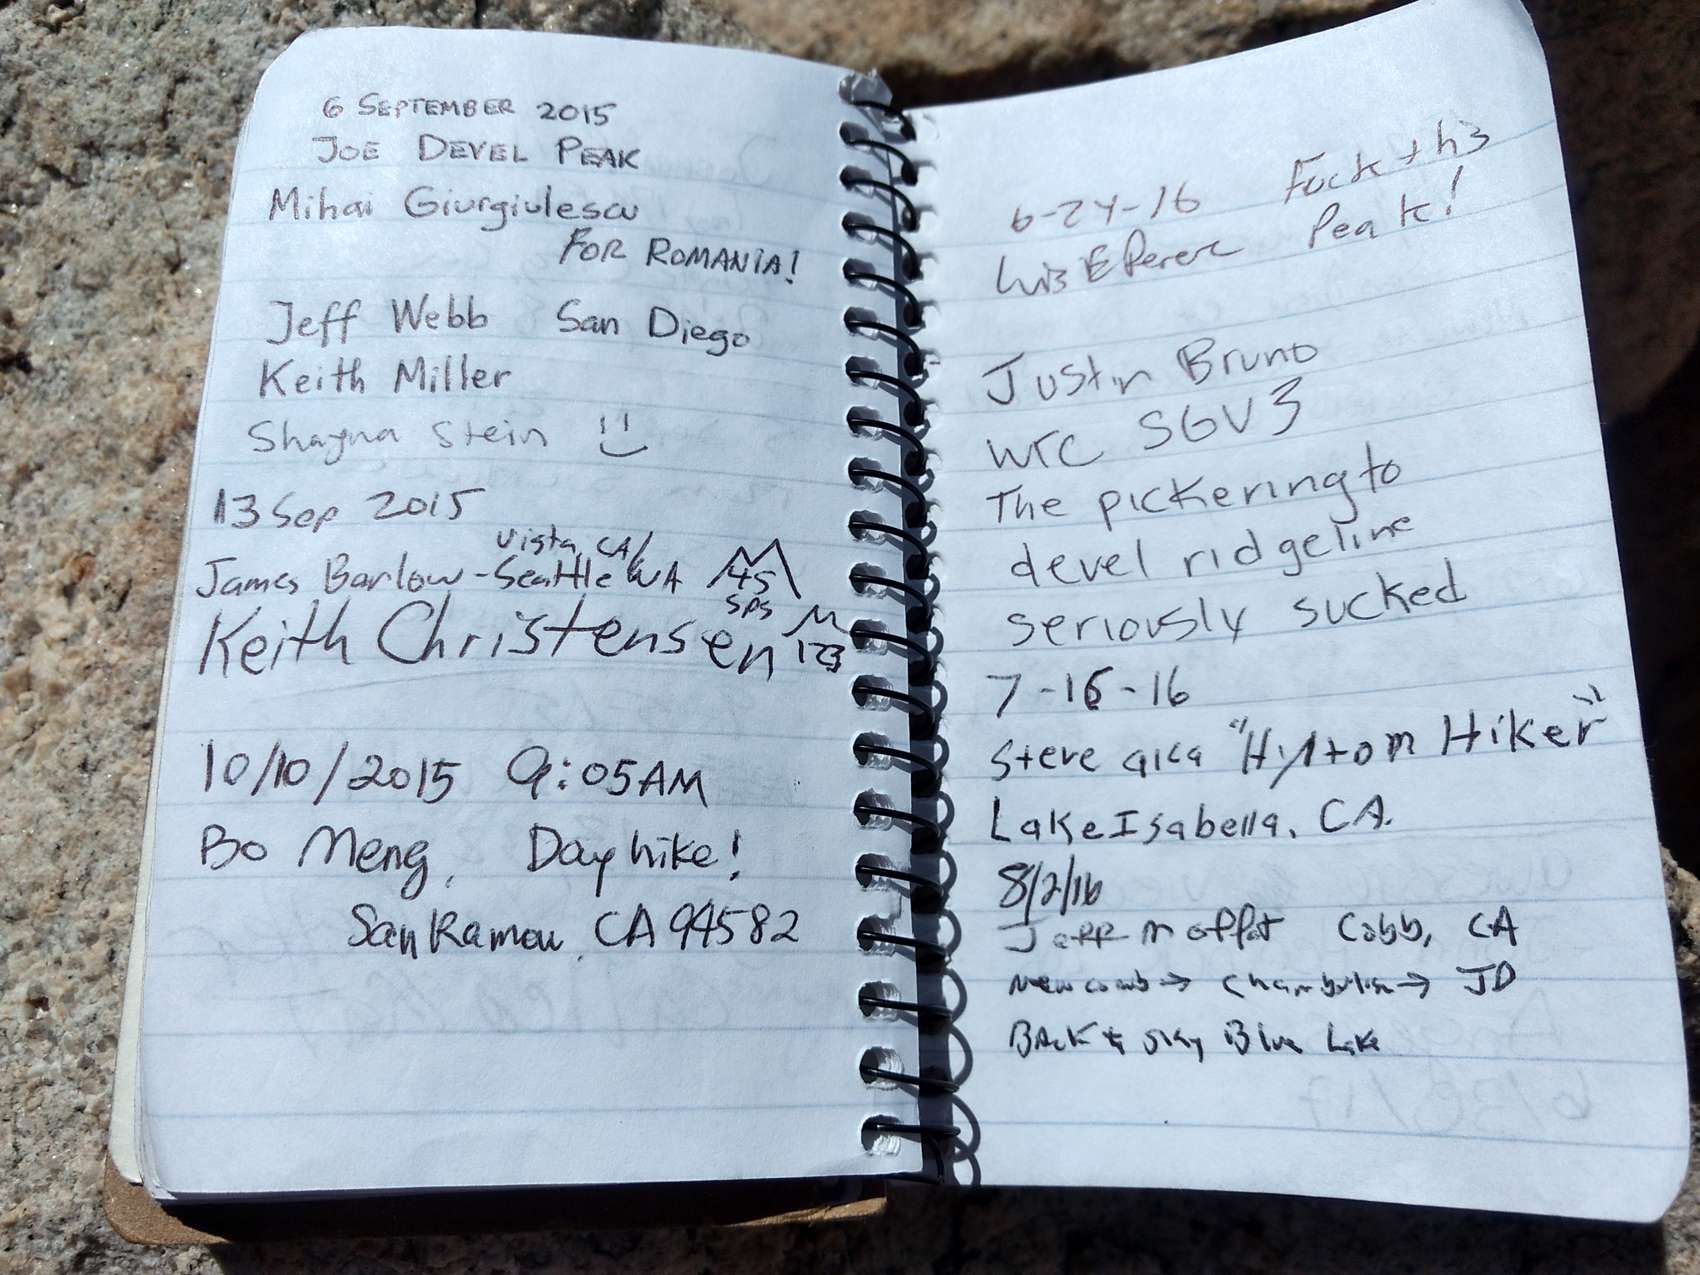 6 SEPTEMBER 2015
JOE DEVEL PEAK
Mihai Giurgiulescu
FOR ROMANIA!
Jeff Webb San Diego
Keith Miller
Shayna Stein
13 Sep 2015
Vista, CA/
James Barlow - Seattle WA 45
SPS
Keith Christensen 123
10/10/2015 9:05AM
Bo Meng, Day hike!
San Ramon, CA 94582
6-24-16 Fuck th3
Luis E Perez Peak!
Justin Bruno
WTC SGV3
The pickering to
devel ridgeline
seriously sucked
7-16-16
Steve aka "Hilltom Hiker"
Lake Isabella, CA.
8/2/16
Jeff Moffat Cobb, CA
Newcomb → Chamberlin → JD
Back to Sky Blue Lake